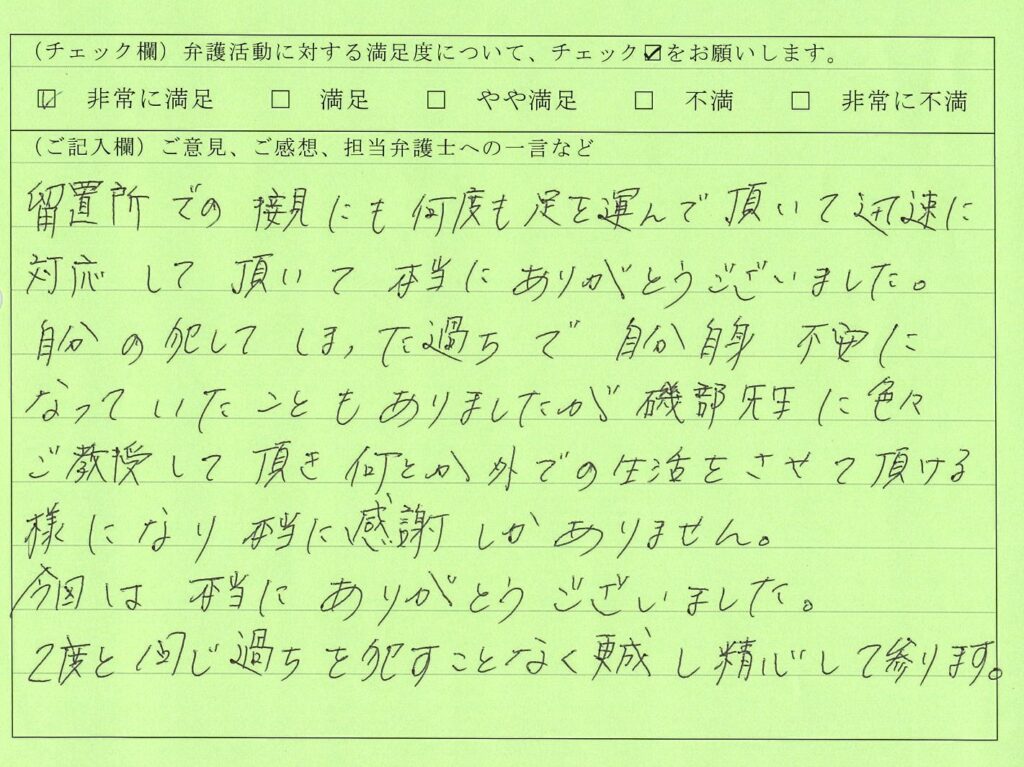 (チェック欄)弁護活動に対する満足度について、チェック☑をお願いします。
☑ 非常に満足 □ 満足 □ やや満足 □ 不満 □ 非常に不満
(ご記入欄)ご意見、ご感想、担当弁護士への一言など
留置所での接見にも何度も足を運んで頂いて迅速に
対応して頂いて本当にありがとうございました。
自分の犯してしまった過ちで自分自身不安に
なっていたこともありましたが磯部先生に色々
ご教授して頂き何とか外での生活をさせて頂ける
様になり本当に感謝しかありません。
今回は本当にありがとうございました。
2度と同じ過ちを犯すことなく更成し精心して参ります。